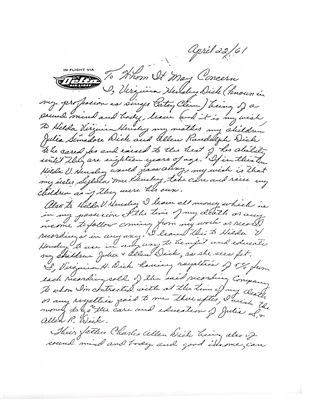 April 22/61
IN FLIGHT VIA
Delta
AIR LINES
To Whom It May Concern
I, Virginia Hensley Dick (known in
my profession as singer Patsy Cline) being of a
sound mind and body, leave and it is my wish
to Hilda Virginia Hensley my mother my children
Julia Simadore Dick and Allen Randolph Dick
to be cared for and raised to the best of her ability
until they are eighteen years of age. If in this time
Hilda V. Hensley would pass away my wish is that
my sister Sylvia Mae Hensley, take care and raise my
children as if they were her own.
Also to Hilda V. Hensley I leave all money which is
in my possession at the time of my death or any
income to follow coming from my work as records
recordings in any way. I leave this to Hilda V.
Hensley to use in any way to benefit and educate
my children Julia & Allen Dick, as she sees fit.
I, Virginia H. Dick leaving royalties of 5% from
each Recording sold of the said recording Company
to whom I'm contracted with at the time of my death
or any royalties paid to me thereafter, I wish the
money to go to the care and education of Julia S. &
Allen R. Dick.
Their father Charles Allen Dick being also of
sound mind and body and good income, can